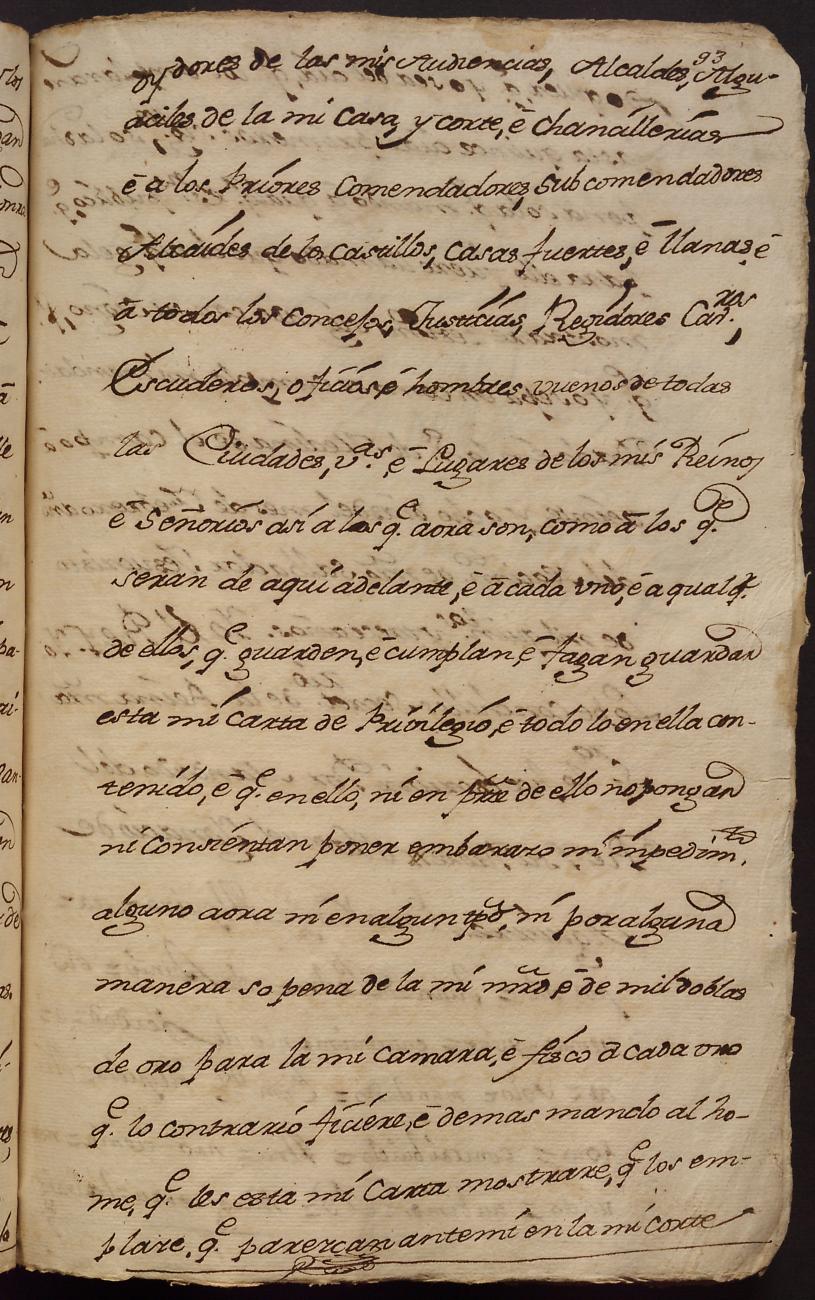 93
oydores de las mis Audiencias, Alcaldes, Algu-
aciles de la mi Casa, y corte, è chanallerias
è a los Priores Comendadores, subcomendadores
Alcaides de los Castillos, Casas fuertes, è llanas, è
à todos los Concejos, Justicias, Regidores Cav.ros,
Escuderos, oficios, è hombres vuenos de todas
las Ciudades, v.as, è Lugares de los mis Reinos
è Señorios asi a los q.e aora son, como à los q.e
seran de aqui adelante, è à cada uno, è a qualq.
de ellos, q.e guarden, è cumplan, è fagan guardar
esta mi Carta de Privilegio, è todo lo en ella con-
tenido, è q.e en ello, ni en pte de ello no pongan
ni consientan poner embarazo ni impedim.to
alguno aora ni en algun tpo, ni por alguna
manera so pena de la mi mrd, è de mil doblas
de oro para la mi Camara, è fisco à cada uno
q.e lo contrario ficiere, è demas mando al ho-
me, q.e les esta mi Carta mostrare, q.e los em-
plaze, q.e parezcan ante mi en la mi corte